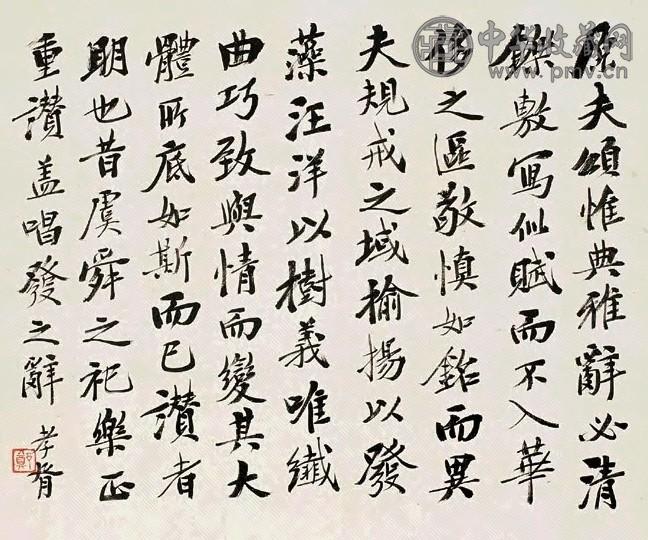 原夫頌惟典雅辭必清
鑠敷寫似賦而不入華
侈之區敬慎如銘而異
夫規戒之域揄揚以發
藻汪洋以樹義唯纖
曲巧致與情而變其大
體所底如斯而已讚者
明也昔虞舜之祀樂正
重讚蓋唱發之辭
孝胥
中华收藏网
www.pmv.cn